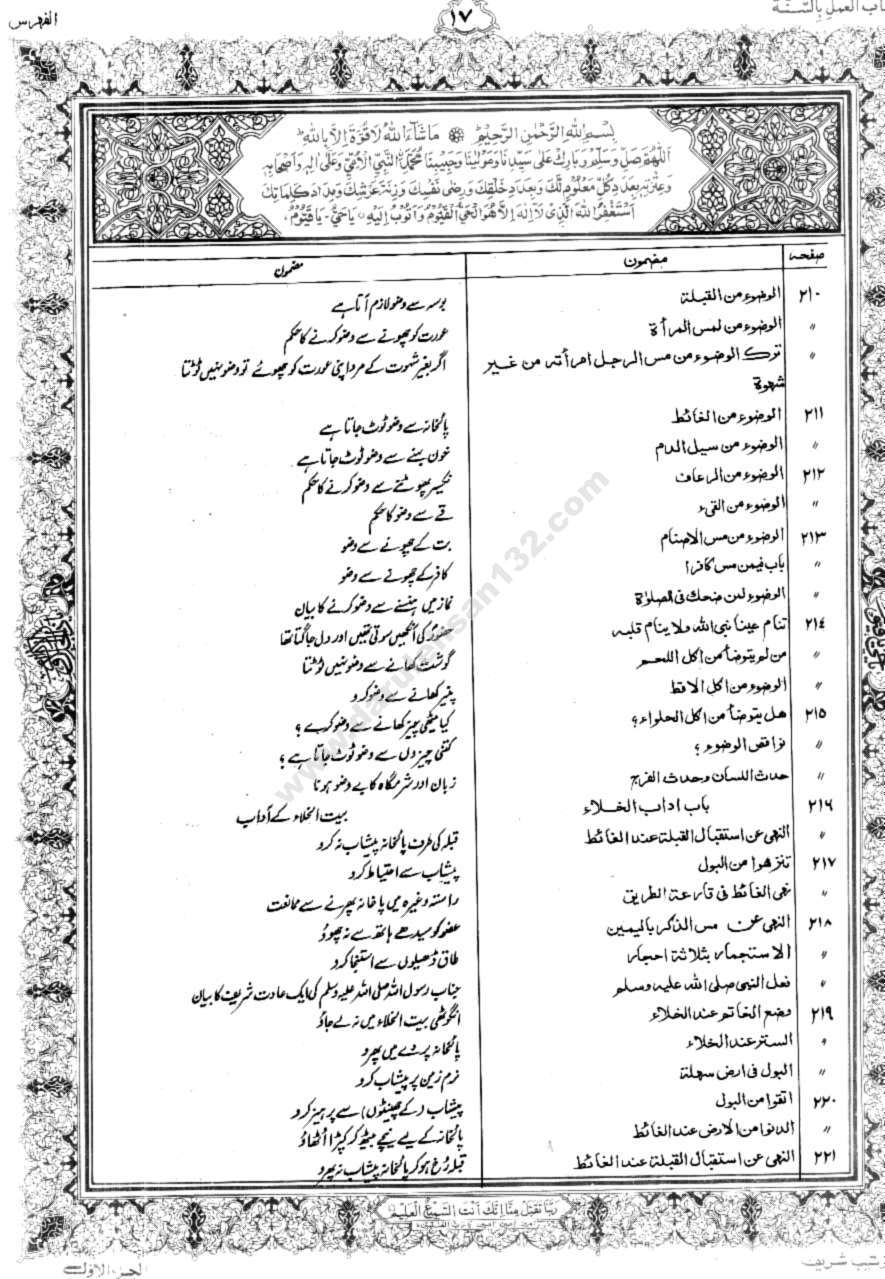 الفهرس
١٧
كتاب العمل بالسنة
بسم الله الرحمن الرحيم ماشاء الله لا قوة الا بالله
اللهم صل وسلم وبارك على سيدنا ومولينا وحبيبنا محمد النبي الامي وعلى اله واصحابه
وعترته بعدد كل معلوم لك وبعدد خلقك ورضى نفسك وزنة عرشك ومداد كلماتك
استغفر الله الذي لا اله الا هو الحي القيوم واتوب اليه يا حي يا قيوم
صفحہ مضمون مضمون
٢١٠ الوضوء من القبلة بوسہ سے وضو لازم آتا ہے
〃 الوضوء من لمس المرأة عورت کو چھونے سے وضو کرنے کا حکم
〃 ترك الوضوء من مس الرجل امرأته من غير اگر بغیر شہوت کے مرد اپنی عورت کو چھوئے تو وضو نہیں ٹوٹتا
شهوة
٢١١ الوضوء من الغائط پائخانہ سے وضو ٹوٹ جاتا ہے
〃 الوضوء من سيل الدم خون بہنے سے وضو ٹوٹ جاتا ہے
٢١٢ الوضوء من الرعاف نکسیر پھوٹنے سے وضو کرنے کا حکم
〃 الوضوء من القيء قے سے وضو کا حکم
٢١٣ الوضوء من مس الاصنام بت کے چھونے سے وضو
〃 باب فيمن مس كافرا کافر کے چھونے سے وضو
〃 الوضوء لمن ضحك في الصلوٰة نماز میں ہنسنے سے وضو کرنے کا بیان
٢١٤ تنام عينا نبي الله ولا ينام قلبه حضورؐ کی آنکھیں سوتی تھیں اور دل جاگتا تھا
〃 من لم يتوضأ من اكل اللحم گوشت کھانے سے وضو نہیں ٹوٹتا
〃 الوضوء من اكل الاقط پنیر کھانے سے وضو کرو
٢١٥ هل يتوضأ من اكل الحلواء؟ کیا میٹھی چیز کھانے سے وضو کرے؟
〃 نواقض الوضوء؟ کتنی چیزوں سے وضو ٹوٹ جاتا ہے؟
〃 حدث اللسان وحدث الفرج زبان اور شرمگاہ کا بے وضو ہونا
٢١٦ باب اداب الخلاء بیت الخلاء کے آداب
〃 النهي عن استقبال القبلة عند الغائط قبلہ کی طرف پائخانہ پیشاب نہ کرو
٢١٧ تنزهوا من البول پیشاب سے احتیاط کرو
〃 نهي الغائط في قارعة الطريق راستہ وغیرہ میں پاخانہ پھرنے سے ممانعت
٢١٨ النهي عن مس الذكر باليمين عضو کو سیدھے ہاتھ سے نہ چھوؤ
〃 الاستجمار بثلاثة احجار طاق ڈھیلوں سے استنجا کرو
〃 فعل النبي صلى الله عليه وسلم جناب رسول اللہ صلی اللہ علیہ وسلم کی ایک عادت شریف کا بیان
٢١٩ وضع الخاتم عند الخلاء انگوٹھی بیت الخلاء میں نہ لے جاؤ
〃 الستر عند الخلاء پائخانہ پردے میں پھرو
〃 البول في ارض سهلة نرم زمین پر پیشاب کرو
٢٢٠ اتقوا من البول پیشاب (کے چھینٹوں) سے پرہیز کرو
〃 الدنو من الارض عند الغائط پائخانہ کے لیے نیچے بیٹھ کر کپڑا اُٹھاؤ
٢٢١ النهي عن استقبال القبلة عند الغائط قبلہ رُخ ہو کر پائخانہ پیشاب نہ پھرو
www.darulehsan132.com
ربنا تقبل منا انك انت السميع العليم
ترتيب شريف
الجزء الاول